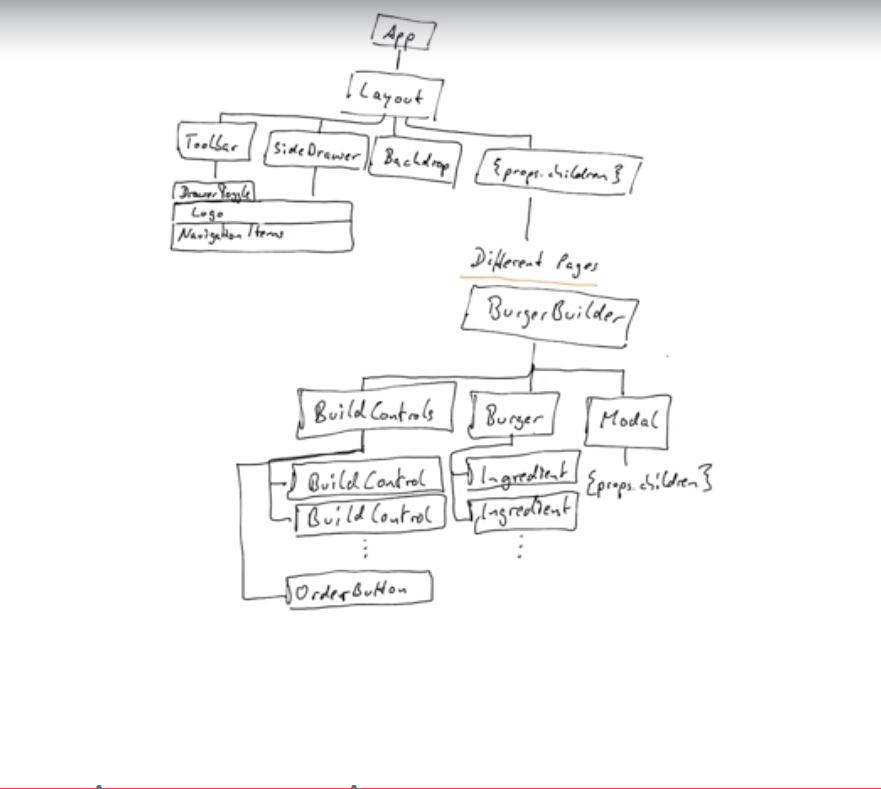 App
Layout
Toolbar
SideDrawer
Backdrop
{props.children}
DrawerToggle
Logo
Navigation Items
Different Pages
BurgerBuilder
BuildControls
Burger
Modal
BuildControl
Ingredient
{props.children}
BuildControl
Ingredient
OrderButton